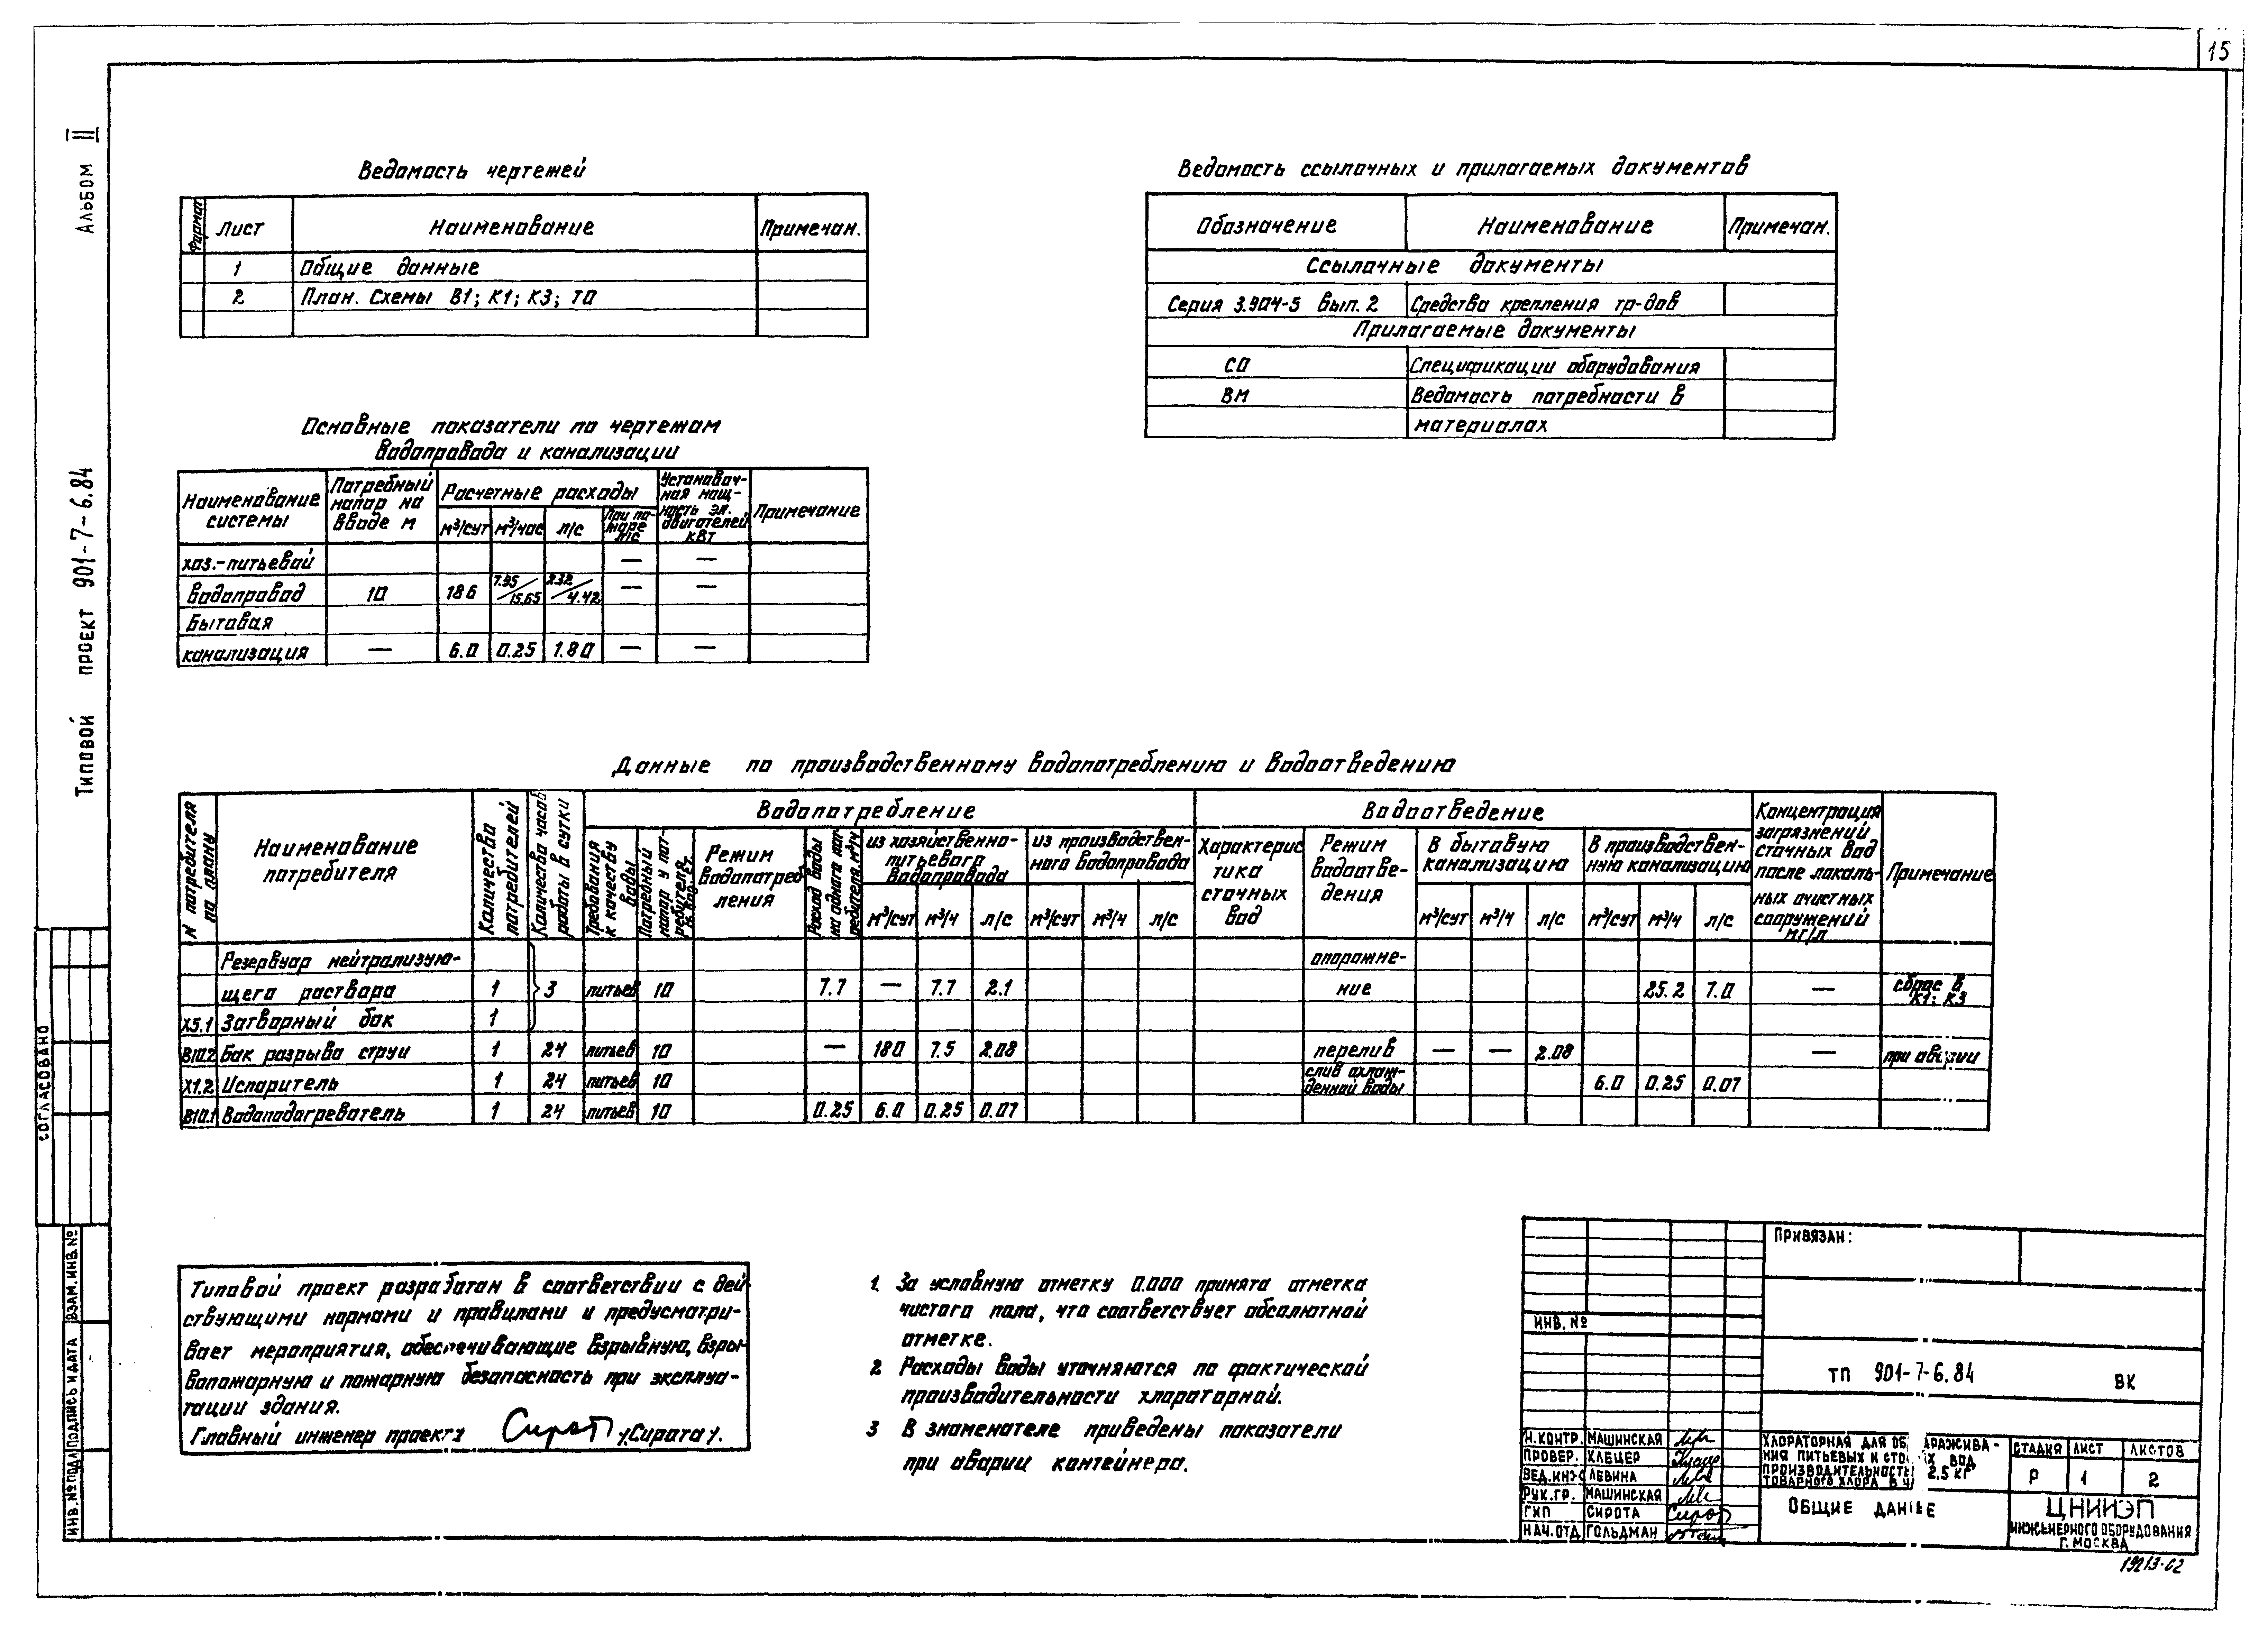 15
Альбом II
Типовой проект 901-7-6.84
Ведомость чертежей
Формат
Лист
Наименование
Примечан.
1 Общие данные
2 План. Схемы В1; К1; К3; Т0
Ведомость ссылочных и прилагаемых документов
Обозначение Наименование Примечан.
Ссылочные документы
Серия 3.904-5 вып. 2 Средства крепления тр-дов
Прилагаемые документы
СО Спецификации оборудования
ВМ Ведомость потребности в
материалах
Основные показатели по чертежам
водопровода и канализации
Наименование
системы
Потребный
напор на
вводе м
Расчетные расходы
м³/сут м³/час л/с
При по-
жаре
л/с
Установоч-
ная мощ-
ность эл.
двигателей
квт
Примечание
хоз.-питьевой — —
водопровод 10 186 7.95/15.65 2.32/4.42 — —
Бытовая
канализация — 6.0 0.25 1.80 — —
Данные по производственному водопотреблению и водоотведению
N потребителя
по плану
Наименование
потребителя
Количество
потребителей
Количество часов
работы в сутки
Водопотребление
Требования
к качеству
воды
Потребный
напор у пот-
ребителя
Режим
водопотреб
ления
Расход воды
на одного пот-
ребителя м³/ч
из хозяйственно-
питьевого
водопровода
м³/сут м³/ч л/с
из производствен-
ного водопровода
м³/сут м³/ч л/с
Водоотведение
Характерис
тика
сточных
вод
Режим
водоотве-
дения
В бытовую
канализацию
м³/сут м³/ч л/с
В производствен-
ную канализацию
м³/сут м³/ч л/с
Концентрация
загрязнений
сточных вод
после локаль-
ных очистных
сооружений
мг/л
Примечание
Резервуар нейтрализую- опорожне-
щего раствора 1 3 питьев 10 7.7 — 7.7 2.1 ние 25.2 7.0 — сброс в К1; К3
Х5.1 Затворный бак 1
В10.2 Бак разрыва струи 1 24 питьев 10 — 180 7.5 2.08 перелив — — 2.08 — при аварии
Х1.2 Испаритель 1 24 питьев 10 слив охлаж- денной воды 6.0 0.25 0.07
В10.1 Водоподогреватель 1 24 питьев 10 0.25 6.0 0.25 0.07
Типовой проект разработан в соответствии с дей-
ствующими нормами и правилами и предусматри-
вает мероприятия, обеспечивающие взрывную, взры-
вопожарную и пожарную безопасность при эксплуа-
тации здания.
Главный инженер проекта Сирот /Сирота/.
1. За условную отметку 0.000 принята отметка
чистого пола, что соответствует абсолютной
отметке.
2 Расходы воды уточняются по фактической
производительности хлораторной.
3 В знаменателе приведены показатели
при аварии контейнера.
СОГЛАСОВАНО
ИНВ.№ПОДЛ ПОДПИСЬ И ДАТА ВЗАМ.ИНВ.№
ПРИВЯЗАН:
ИНВ. №
ТП 901-7-6.84 ВК
Н.КОНТР. МАШИНСКАЯ
ПРОВЕР. КЛЕЦЕР
ВЕД.ИНЖ ЛЕВИНА
РУК.ГР. МАШИНСКАЯ
ГИП СИРОТА
НАЧ.ОТД ГОЛЬДМАН
ХЛОРАТОРНАЯ ДЛЯ ОБЕЗЗАРАЖИВА-
НИЯ ПИТЬЕВЫХ И СТОЧНЫХ ВОД
ПРОИЗВОДИТЕЛЬНОСТЬЮ 2,5 КГ
ТОВАРНОГО ХЛОРА В Ч
ОБЩИЕ ДАННЫЕ
СТАДИЯ ЛИСТ ЛИСТОВ
Р 1 2
ЦНИИЭП
ИНЖЕНЕРНОГО ОБОРУДОВАНИЯ
Г. МОСКВА
19213-02